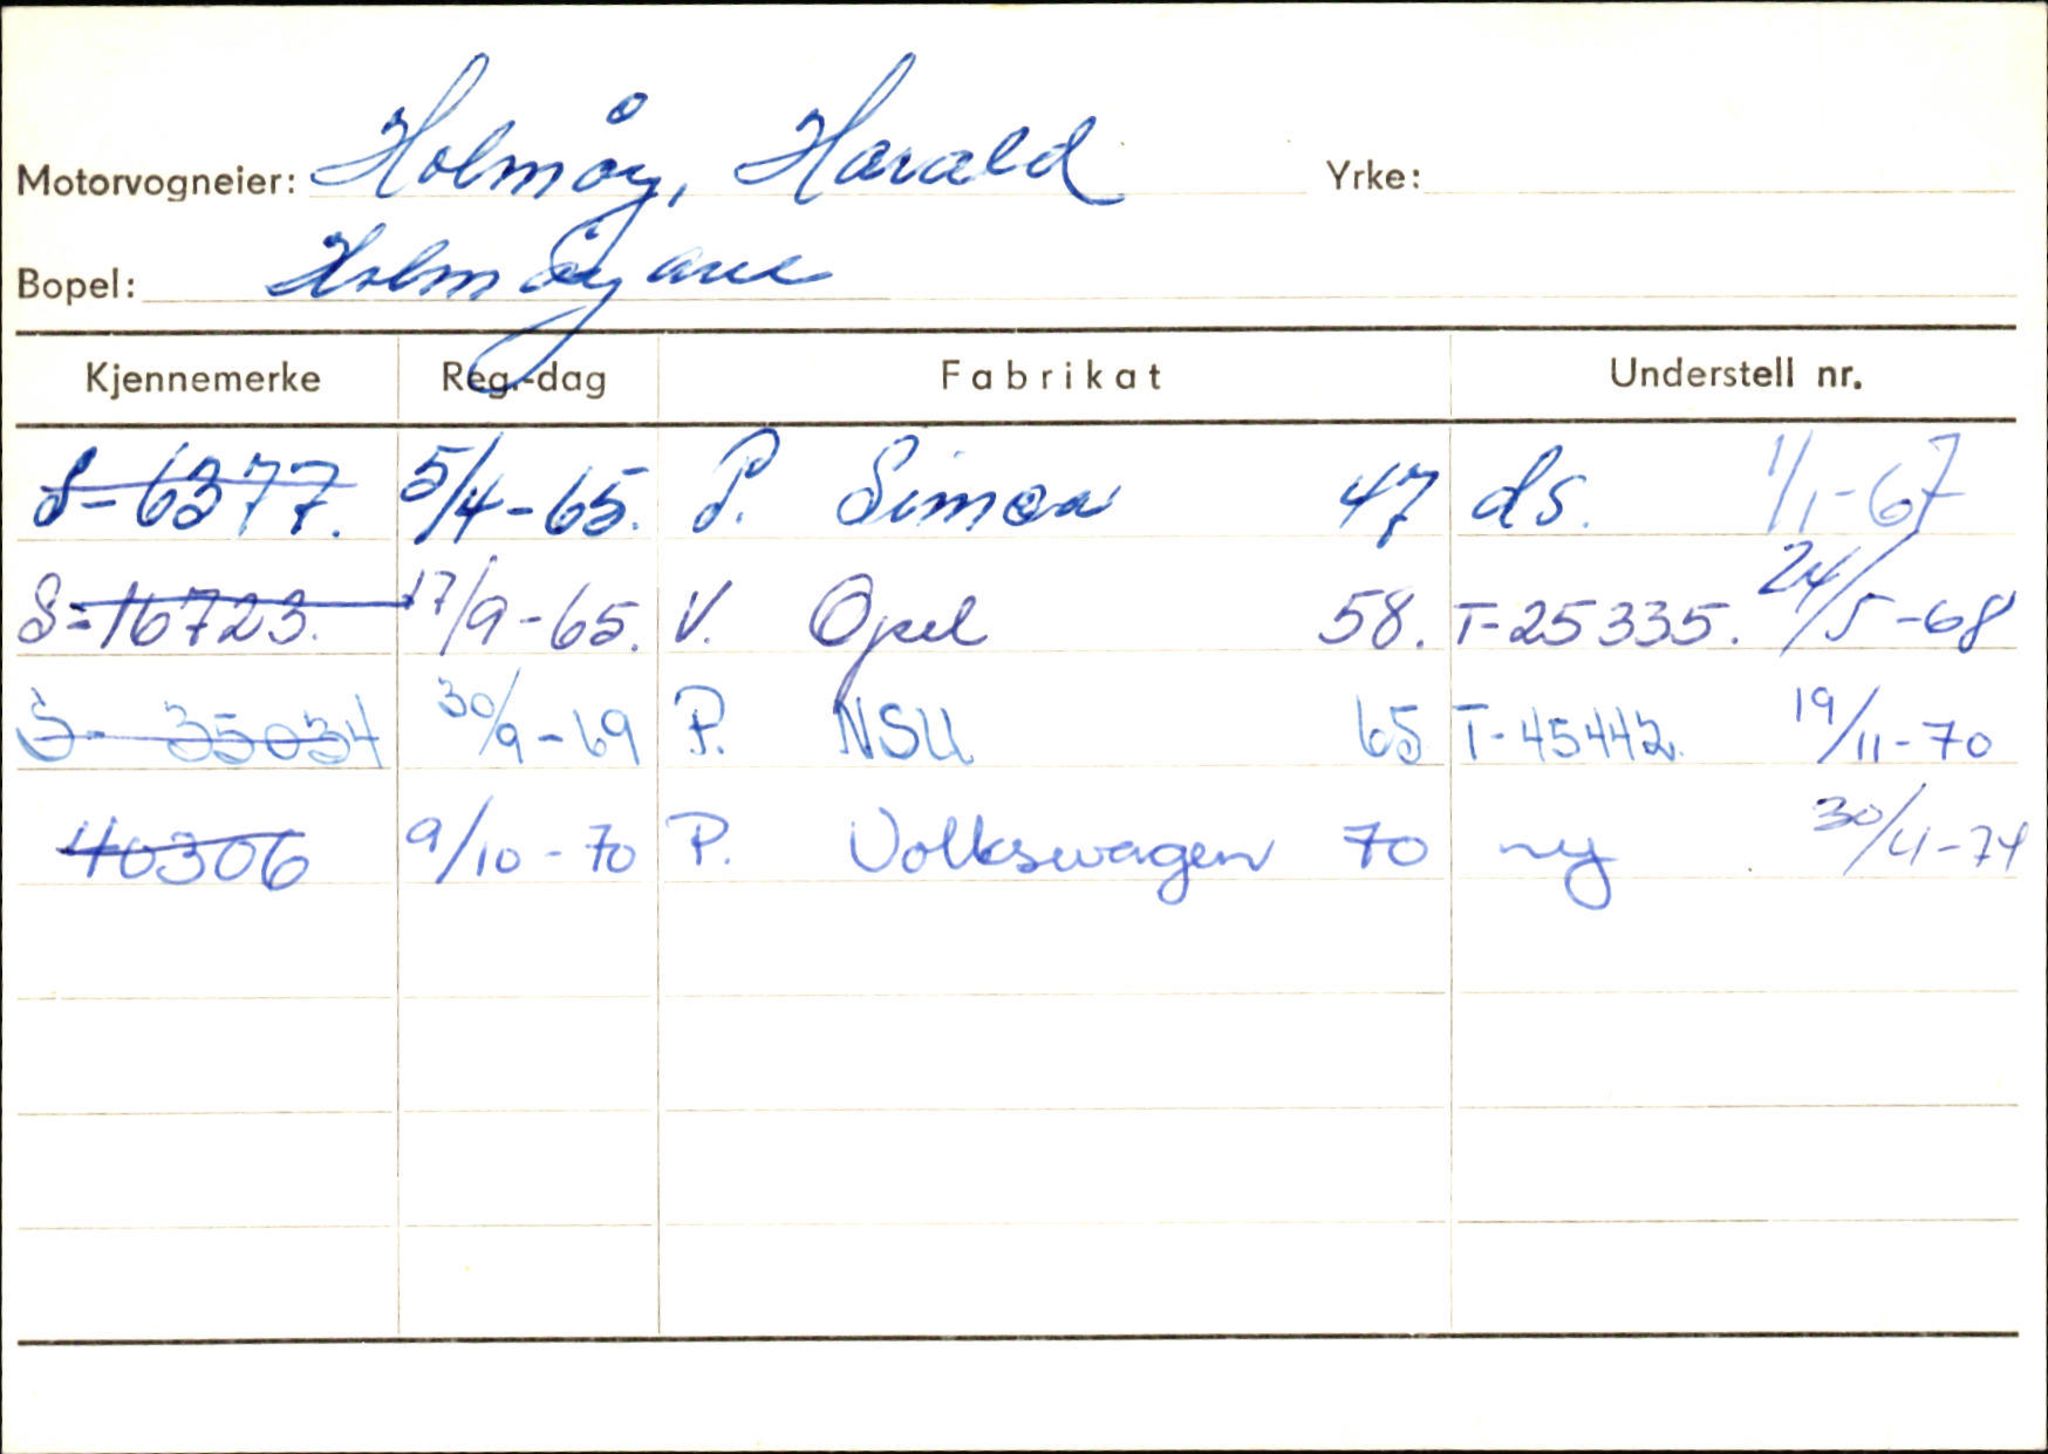 Motorvogneier: Holmöy, Harald Yrke:
Bopel: Holmöyane
Kjennemerke Reg.-dag Fabrikat Understell nr.
S-6377. 5/4-65. P. Simca 47 ds. 1/1-67
S-16723. 17/9-65. V. Opel 58. T-25335. 24/5-68
S- 35034 30/9-69 P. NSU 65 T-45442. 19/11-70
40306 9/10-70 P. Volkswagen 70 ny 30/4-74